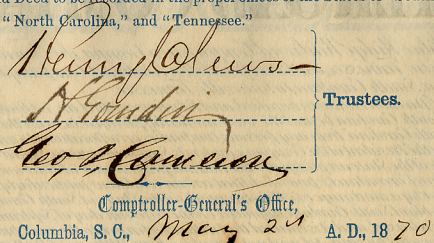 Deed to be recorded in the proper offices of the States of
"North Carolina," and "Tennessee."
Henry Clews
H Gourdin
Geo. S. Cameron
Trustees.
Comptroller-General's Office,
Columbia, S. C., May 2d A. D., 1870